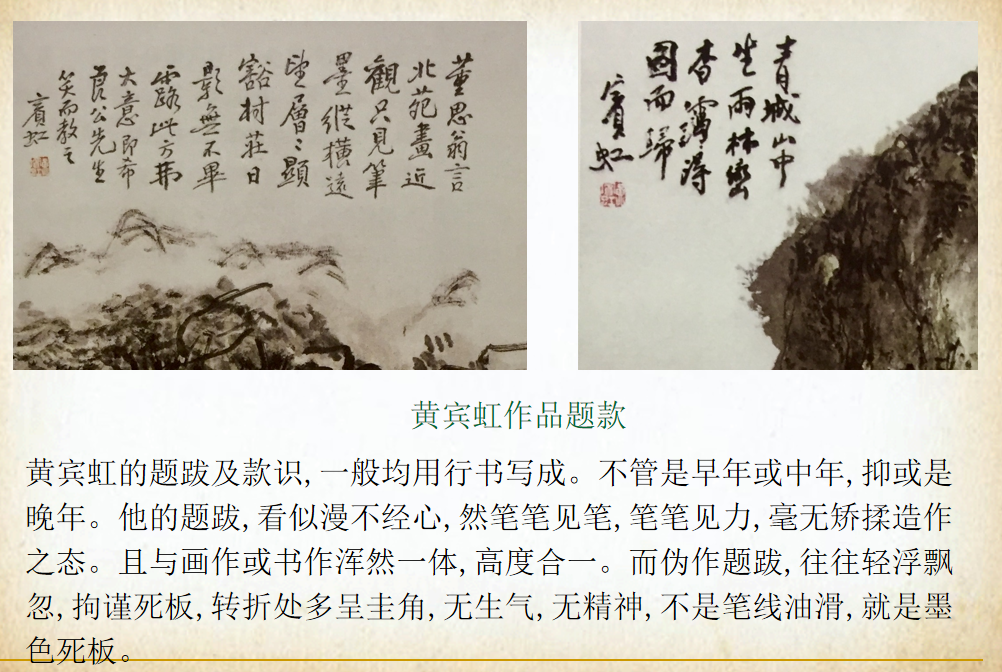 董思翁言
北苑畫近
觀只見筆
墨縱橫遠
望層〻顯
豁村莊日
影無不畢
露此方弗
大意即希
公先生
笑而教之
賓虹
青城山中
坐雨林巒
杳靄得
圖而歸
賓虹
黄宾虹作品题款
黄宾虹的题跋及款识,一般均用行书写成。不管是早年或中年,抑或是
晚年。他的题跋,看似漫不经心,然笔笔见笔,笔笔见力,毫无矫揉造作
之态。且与画作或书作浑然一体,高度合一。而伪作题跋,往往轻浮飘
忽,拘谨死板,转折处多呈圭角,无生气,无精神,不是笔线油滑,就是墨
色死板。